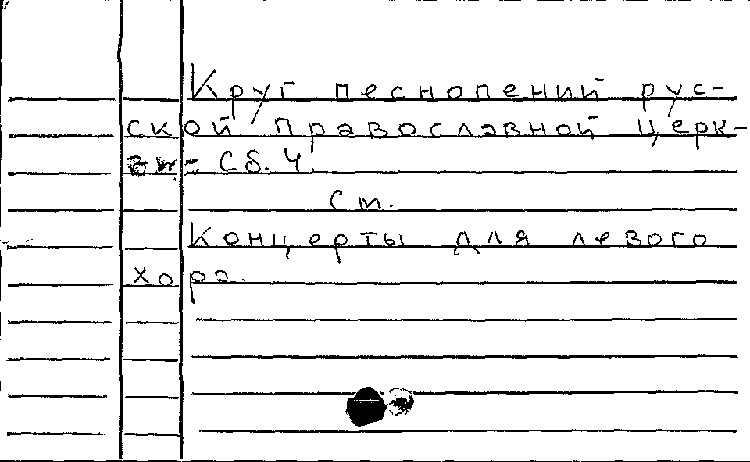 Круг песнопений рус-
ской православной церк-
ви- Сб. 4.
см.
Концерты для левого
хора.